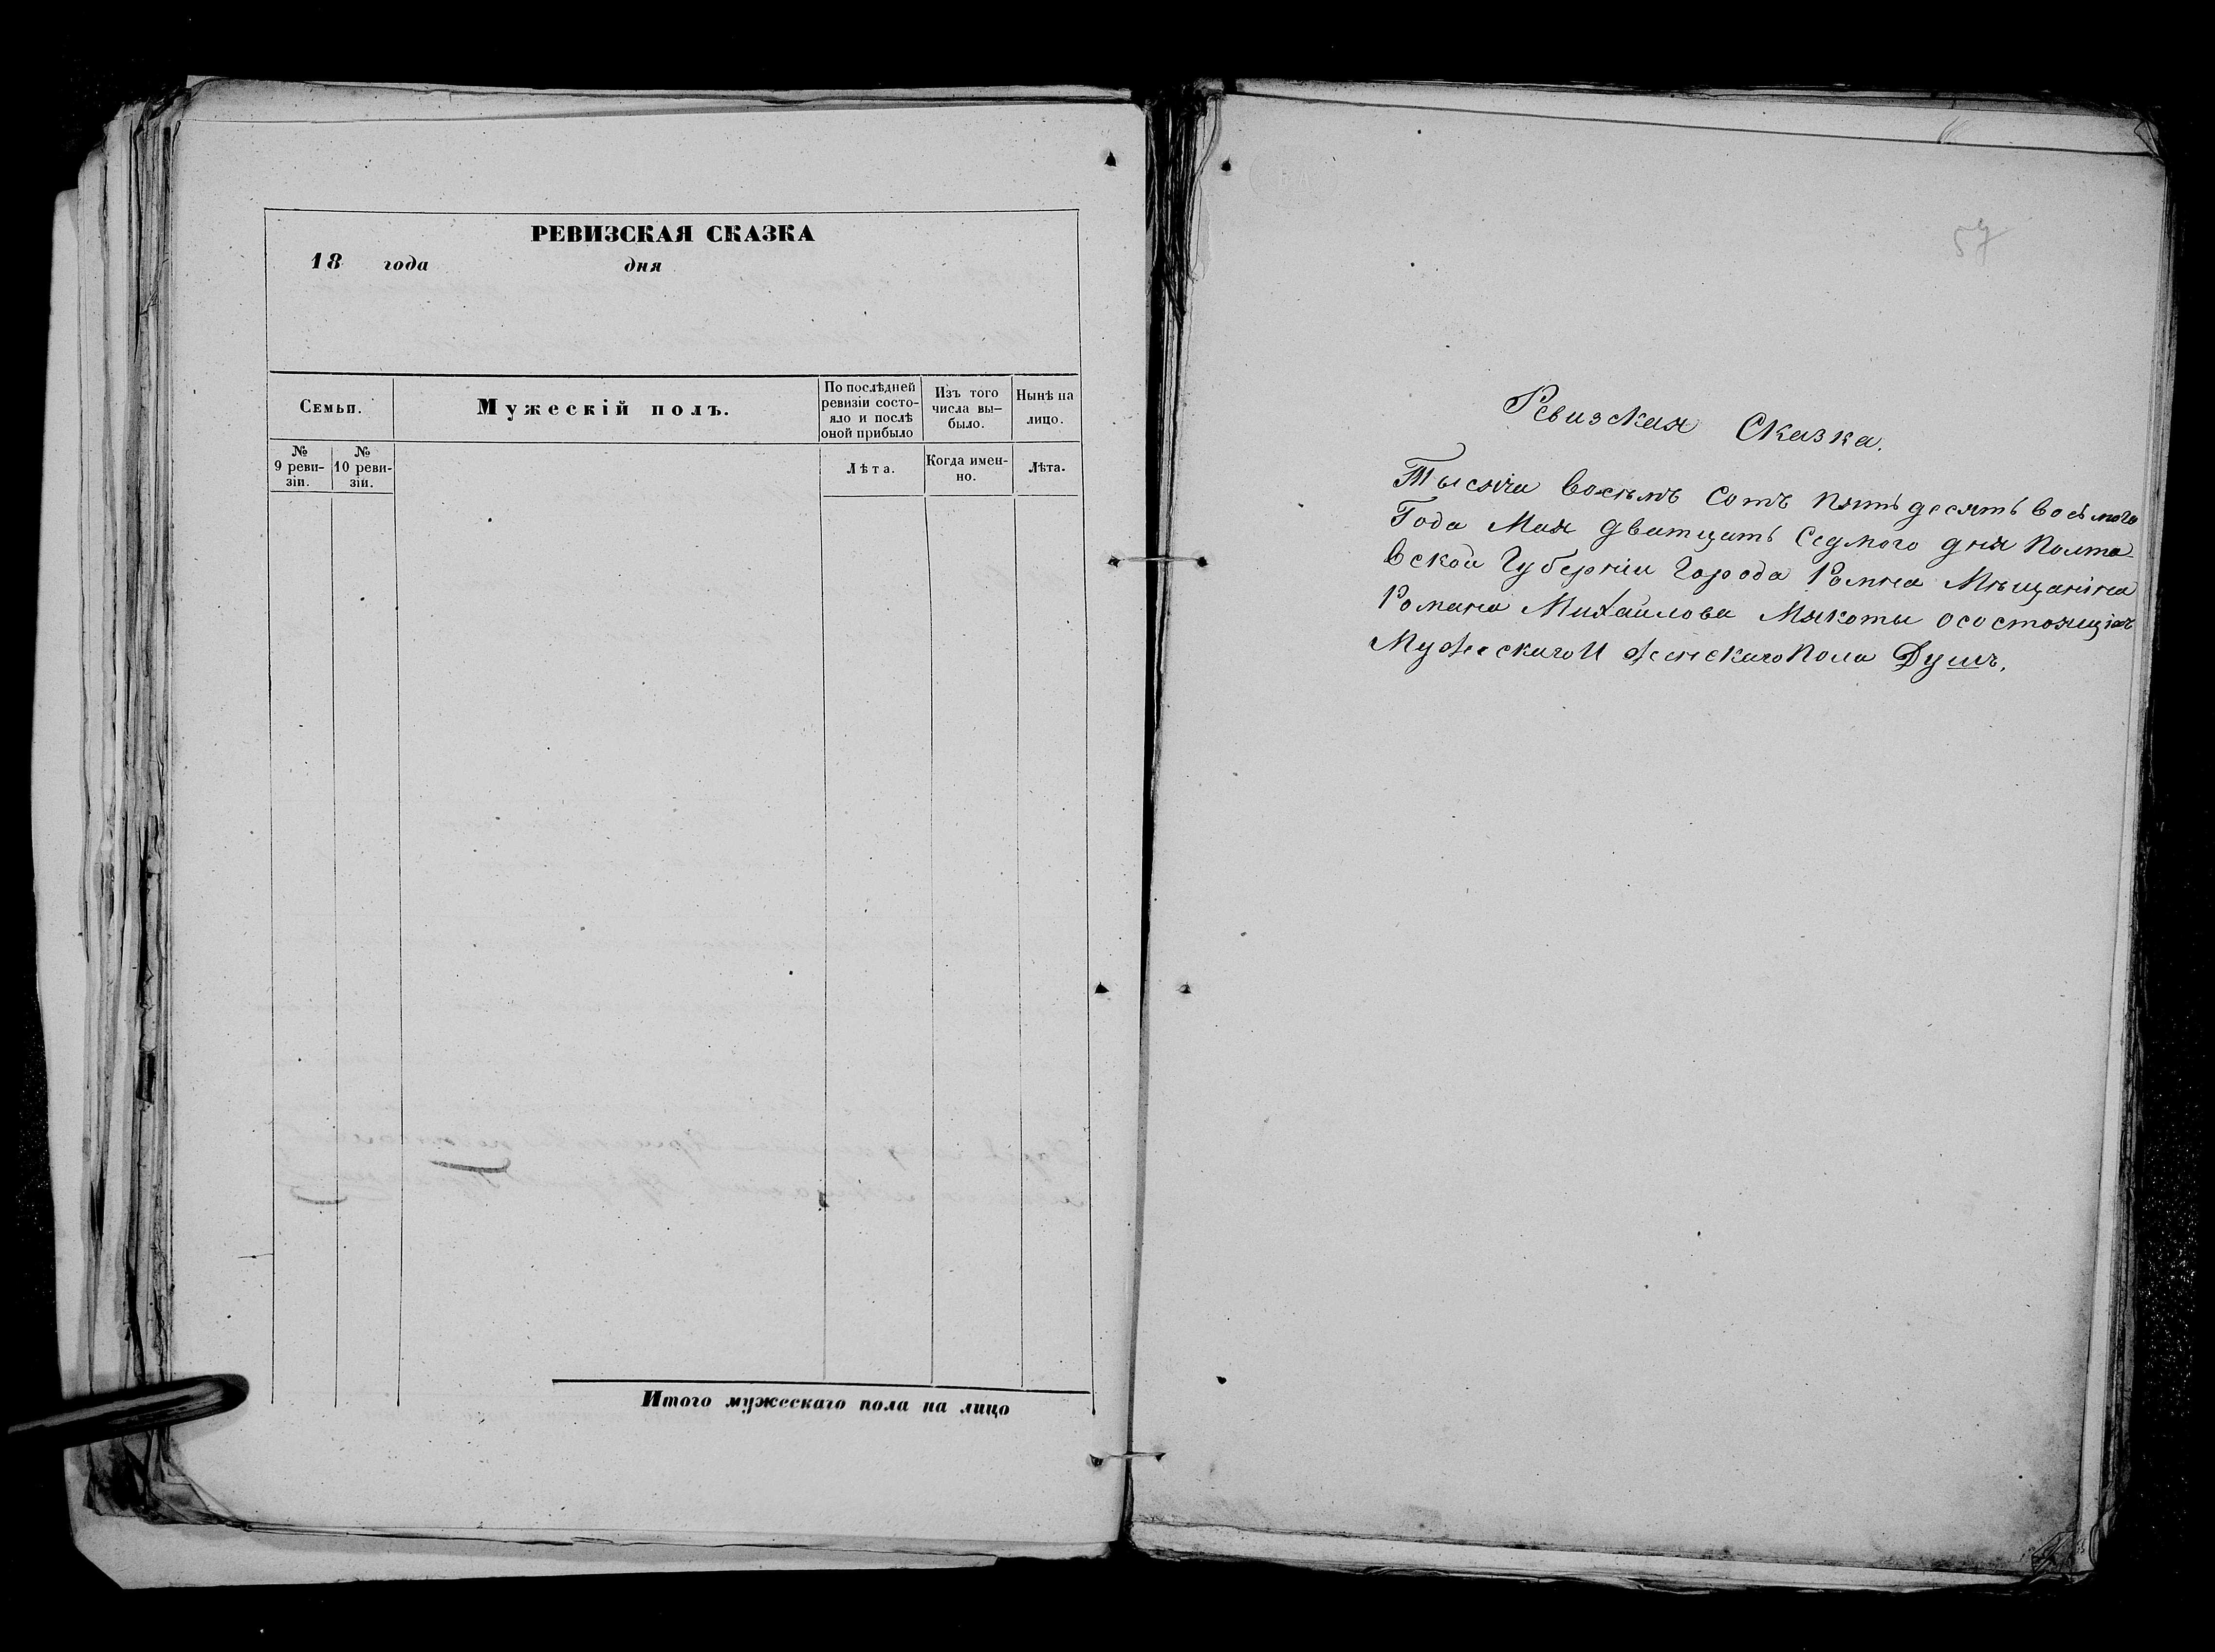 РЕВИЗСКАЯ СКАЗКА
18 года дня
Семьи.
Мужескій полъ.
По послѣдней ревизіи состояло и послѣ оной прибыло
Изъ того числа вы-было.
Нынѣ на лицо.
№ 9 реви-зіи.
№ 10 реви-зіи.
Лѣта.
Когда имен-но.
Лѣта.
Итого мужескаго пола на лицо
57
Ревизская Сказка.
Тысяча восѣмъ Сотъ пятьдесятъ восьмого
Года Мая дватцать Седмого дня Полта-
вской Губерніи Города Ромна Мѣщанина
Романа Михайлова Мякоты осостоящихъ
Мужескаго И женскаго Пола Душъ.